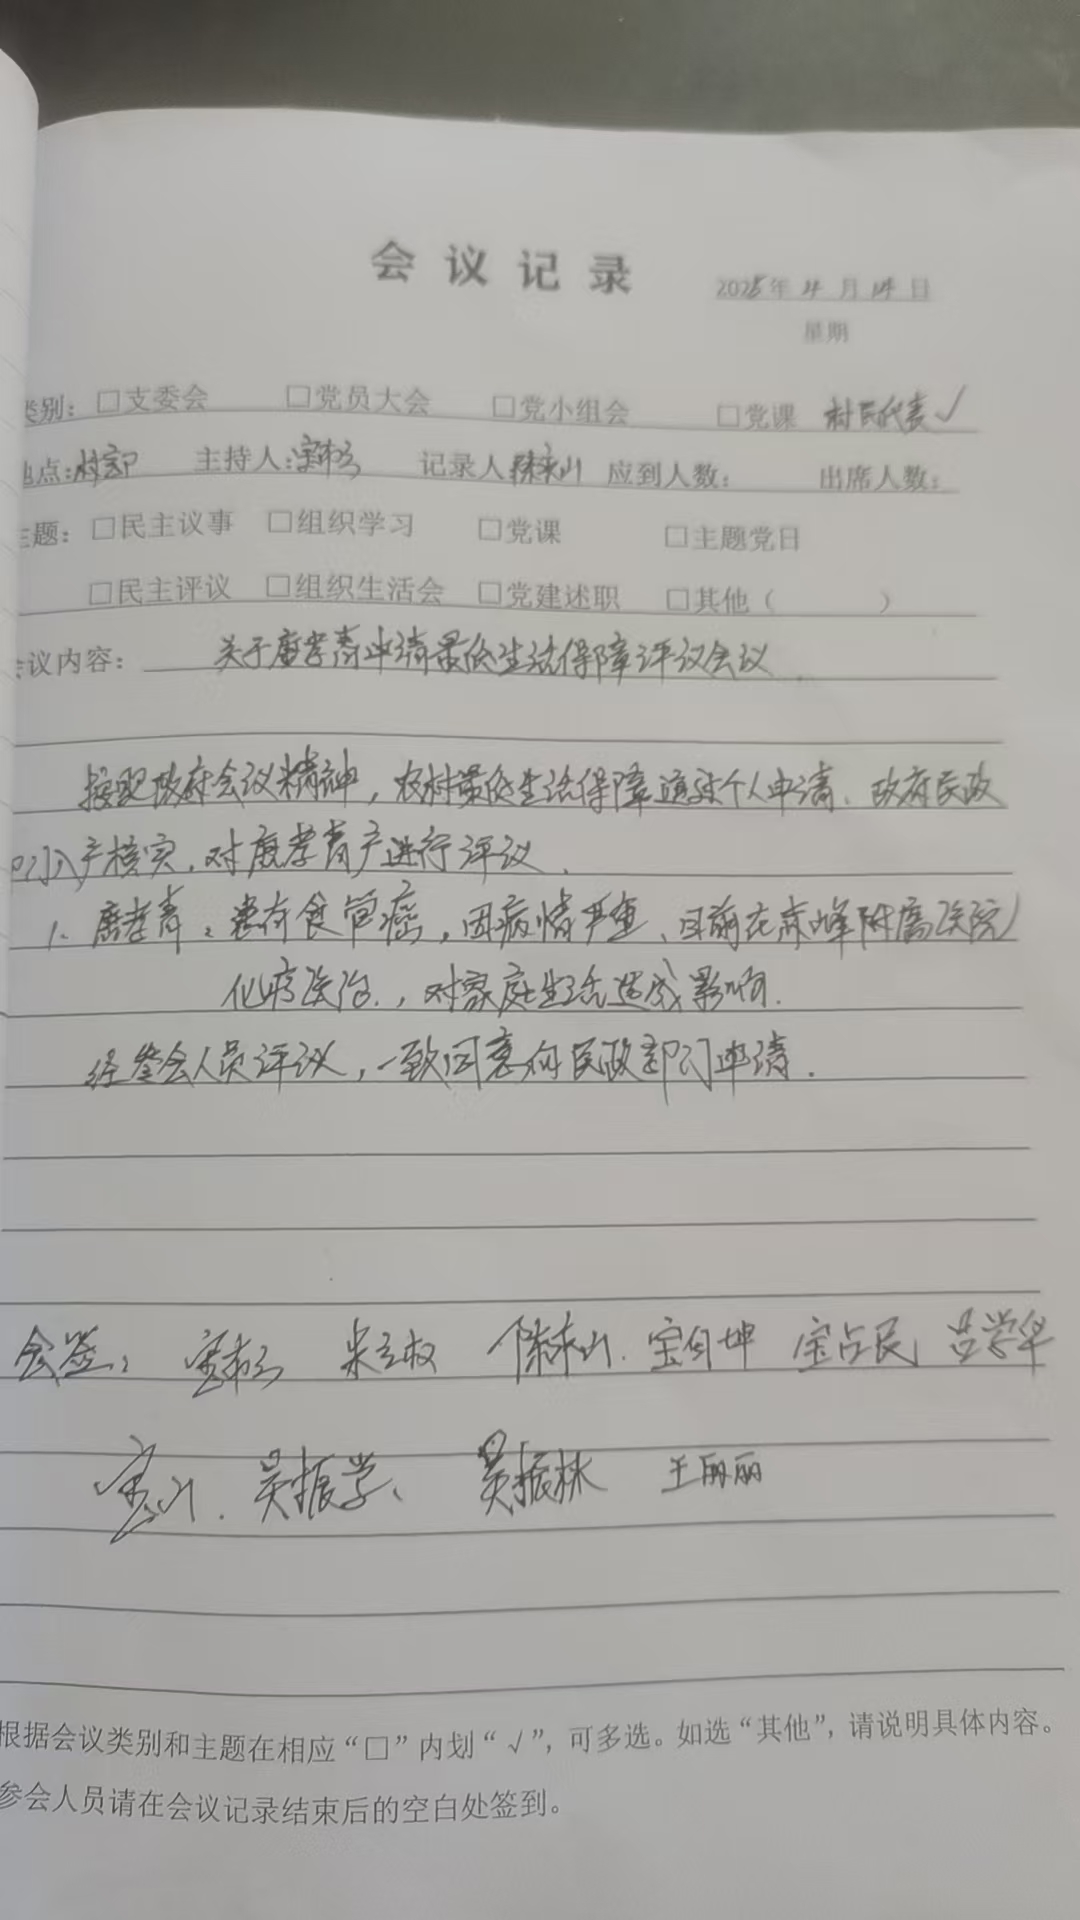 会议记录
2025年4月14日
星期
类别：□支委会 □党员大会 □党小组会 □党课 村民代表√
地点：村部 主持人： 记录人 应到人数： 出席人数：
主题：□民主议事 □组织学习 □党课 □主题党日
□民主评议 □组织生活会 □党建述职 □其他（ ）
会议内容：关于 孝青申请最低生活保障评议会议
按照政府会议精神，农村最低生活保障通过个人申请、政府民政
部门入户核实，对 孝青户进行评议.
1、 孝青，患有食管癌，因病情严重、目前在赤峰附属医院
化疗医治，对家庭生活造成影响.
经参会人员评议，一致同意向民政部门申请.
会签： 宝自坤 宝占民 吕学华
吴振学、 吴振林 王丽丽
根据会议类别和主题在相应“□”内划“√”，可多选。如选“其他”，请说明具体内容。
参会人员请在会议记录结束后的空白处签到。